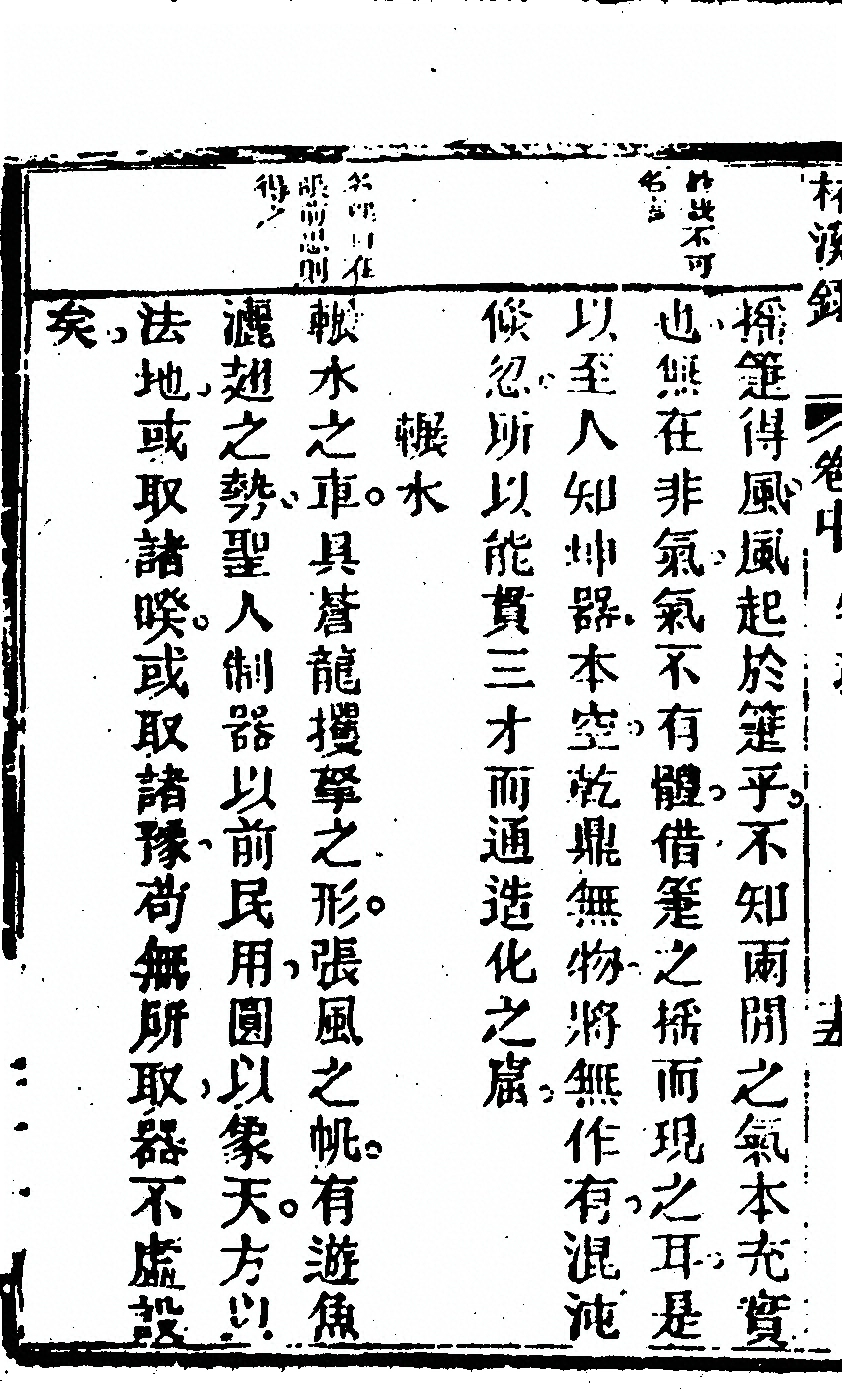 林溪録
卷中
搖箑得風風起於箑乎不知兩間之氣本充實
也無在非氣氣不有體借箑之搖而現之耳是
以至人知坤器本空乾鼎無物將無作有混沌
倐忽所以能貫三才而通造化之窟
輾水
輾水之車具蒼龍攫拏之形張風之帆有遊魚
灑翅之勢聖人制器以前民用圓以象天方以
法地或取諸暌或取諸豫苟無所取器不虛設
矣
不可
名言
眼前思則
得之